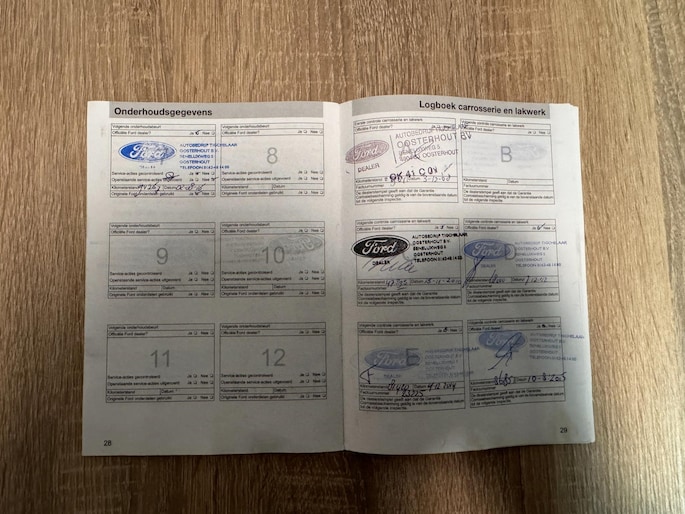 Onderhoudsgegevens
Volgende onderhoudsbeurt
Officiële Ford dealer? Ja Nee
Ford
AUTOBEDRIJF TIGCHELAAR
OOSTERHOUT B.V.
BENELUXWEG 5
OOSTERHOUT
Service-acties gecontroleerd Ja Nee
Openstaande service-acties uitgevoerd Ja Nee
Kilometerstand Datum
Originele Ford onderdelen gebruikt Ja Nee
Volgende onderhoudsbeurt
Officiële Ford dealer? Ja Nee
8
Service-acties gecontroleerd Ja Nee
Openstaande service-acties uitgevoerd Ja Nee
Kilometerstand Datum
Originele Ford onderdelen gebruikt Ja Nee
Volgende onderhoudsbeurt
Officiële Ford dealer? Ja Nee
9
Service-acties gecontroleerd Ja Nee
Openstaande service-acties uitgevoerd Ja Nee
Kilometerstand Datum
Originele Ford onderdelen gebruikt Ja Nee
Volgende onderhoudsbeurt
Officiële Ford dealer? Ja Nee
10
Service-acties gecontroleerd Ja Nee
Openstaande service-acties uitgevoerd Ja Nee
Kilometerstand Datum
Originele Ford onderdelen gebruikt Ja Nee
Volgende onderhoudsbeurt
Officiële Ford dealer? Ja Nee
11
Service-acties gecontroleerd Ja Nee
Openstaande service-acties uitgevoerd Ja Nee
Kilometerstand Datum
Originele Ford onderdelen gebruikt Ja Nee
Volgende onderhoudsbeurt
Officiële Ford dealer? Ja Nee
12
Service-acties gecontroleerd Ja Nee
Openstaande service-acties uitgevoerd Ja Nee
Kilometerstand Datum
Originele Ford onderdelen gebruikt Ja Nee
28
Logboek carrosserie en lakwerk
Eerste controle carrosserie en lakwerk
Officiële Ford dealer? Ja Nee
Ford
DEALER
AUTOBEDRIJF TIGCHELAAR
OOSTERHOUT BV
BENELUXWEG 5
OOSTERHOUT
Kilometerstand Datum
Factuurnummer
De dealerstempel geeft aan dat de Garantie
Carrosseriebescherming geldig is van de bovenstaande datum
tot de volgende inspectie.
Volgende controle carrosserie en lakwerk
Officiële Ford dealer? Ja Nee
B
Kilometerstand Datum
Factuurnummer
De dealerstempel geeft aan dat de Garantie
Carrosseriebescherming geldig is van de bovenstaande datum
tot de volgende inspectie.
Volgende controle carrosserie en lakwerk
Officiële Ford dealer? Ja Nee
Ford
DEALER
AUTOBEDRIJF TIGCHELAAR
OOSTERHOUT B.V.
BENELUXWEG 5
OOSTERHOUT
Kilometerstand Datum
Factuurnummer
De dealerstempel geeft aan dat de Garantie
Carrosseriebescherming geldig is van de bovenstaande datum
tot de volgende inspectie.
Volgende controle carrosserie en lakwerk
Officiële Ford dealer? Ja Nee
Ford
DEALER
Kilometerstand Datum
Factuurnummer
De dealerstempel geeft aan dat de Garantie
Carrosseriebescherming geldig is van de bovenstaande datum
tot de volgende inspectie.
Volgende controle carrosserie en lakwerk
Officiële Ford dealer? Ja Nee
Ford
E
DEALER
Kilometerstand Datum
Factuurnummer
De dealerstempel geeft aan dat de Garantie
Carrosseriebescherming geldig is van de bovenstaande datum
tot de volgende inspectie.
Volgende controle carrosserie en lakwerk
Officiële Ford dealer? Ja Nee
Ford
Kilometerstand Datum 10-3-2005
Factuurnummer
De dealerstempel geeft aan dat de Garantie
Carrosseriebescherming geldig is van de bovenstaande datum
tot de volgende inspectie.
29